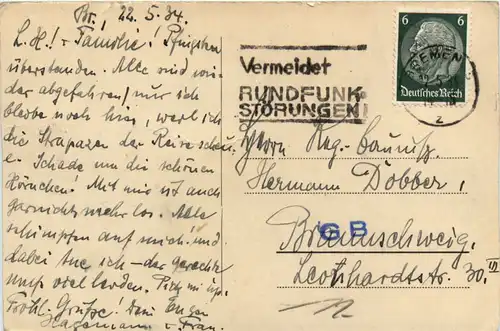 Br. 22.5.34.
L. H! u. Familie! Pfingsten
überstanden. Alle sind wie-
der abgefahren, nur ich
bleibe noch hier, weil ich
die Strapazen der Reise scheu-
e. Schade um die schönen
Hörnchen. Mit mir ist auch
garnichts mehr los. Alle
schimpfen auf mich und
dabei tue ich - der gerechte
muß viel leiden.
Fröhl. Grüße! Dein Eugen
Hagemann u. Frau.
Vermeidet
RUNDFUNK
STÖRUNGEN!
6 6
Deutsches Reich
BREMEN
2
Herrn Reg-Bauinsp.
Hermann Dobber,
GB
Braunschweig.
Leonhardtstr. 30.